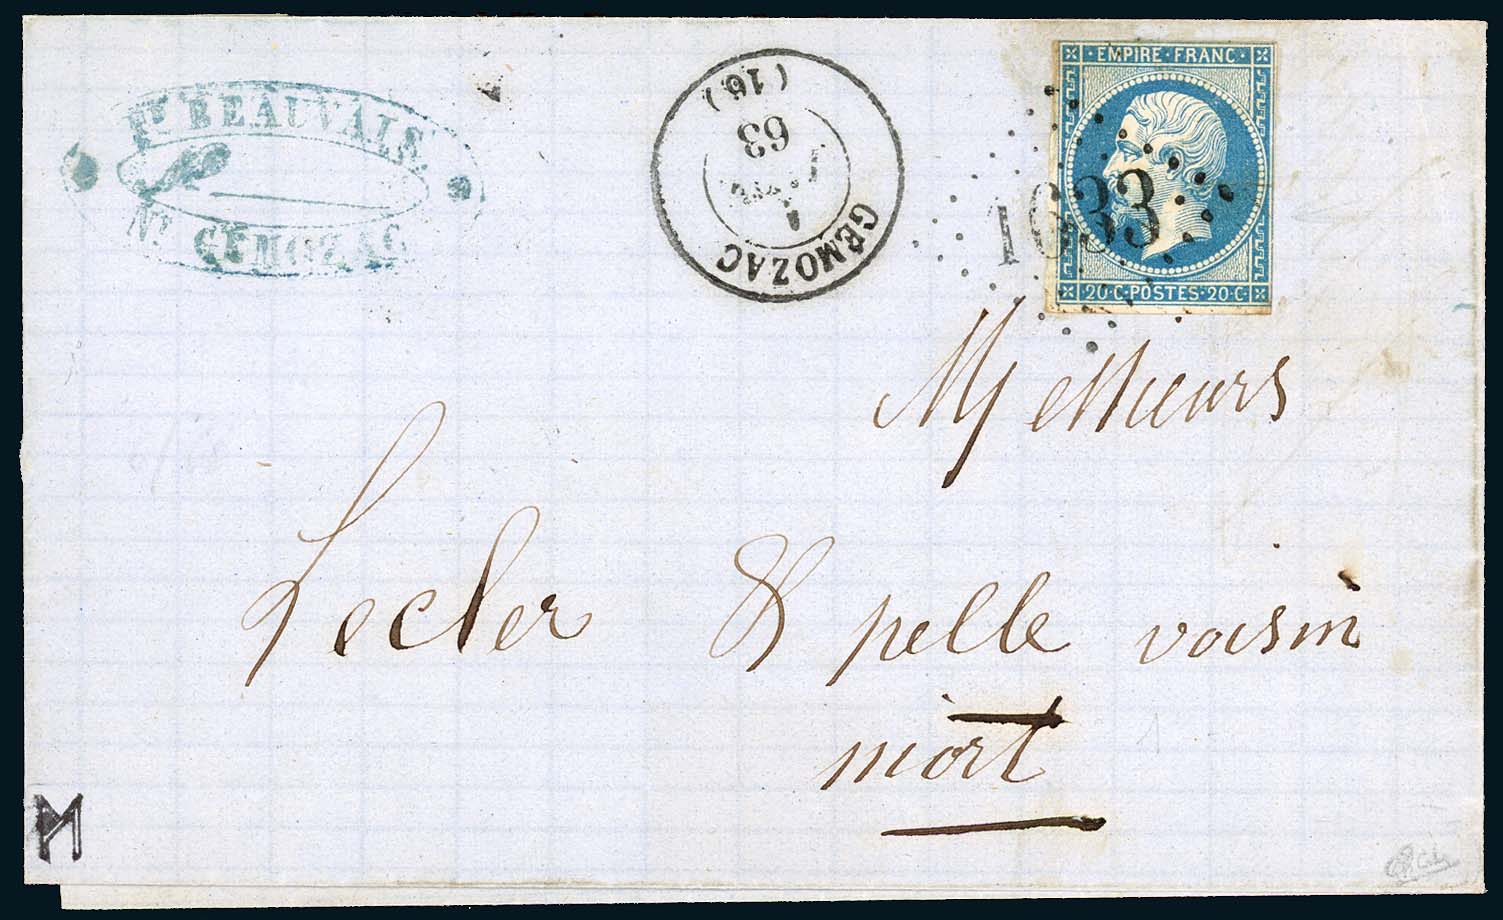 BEAUVAIS
Nt GÉMOZAC
GÉMOZAC
63
(16)
EMPIRE·FRANC·
1633
20·C·POSTES·20·C·
Messieurs
Lecler & pelle voisin
niort
M